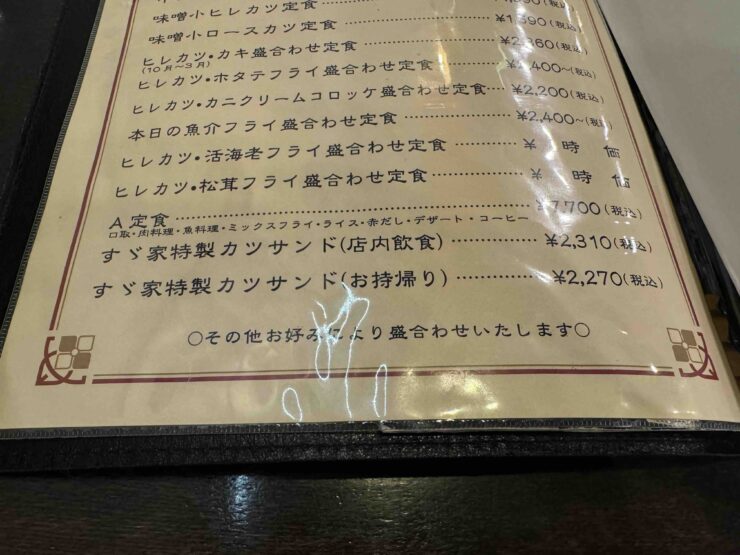 味噌小ヒレカツ定食
味噌小ロースカツ定食 ¥1,590(税込)
ヒレカツ・カキ盛合わせ定食
(10月〜3月)
ヒレカツ・ホタテフライ盛合わせ定食
ヒレカツ・カニクリームコロッケ盛合わせ定食 ¥2,200(税込)
本日の魚介フライ盛合わせ定食 ¥2,400〜(税
ヒレカツ・活海老フライ盛合わせ定食 ¥ 時 価
ヒレカツ・松茸フライ盛合わせ定食 ¥ 時 価
A定食 ¥7,700(税込)
口取・肉料理・魚料理・ミックスフライ・ライス・赤だし・デザート・コーヒー
すゞ家特製カツサンド(店内飲食) ¥2,310(税込)
すゞ家特製カツサンド(お持帰り) ¥2,270(税込)
○その他お好みにより盛合わせいたします○